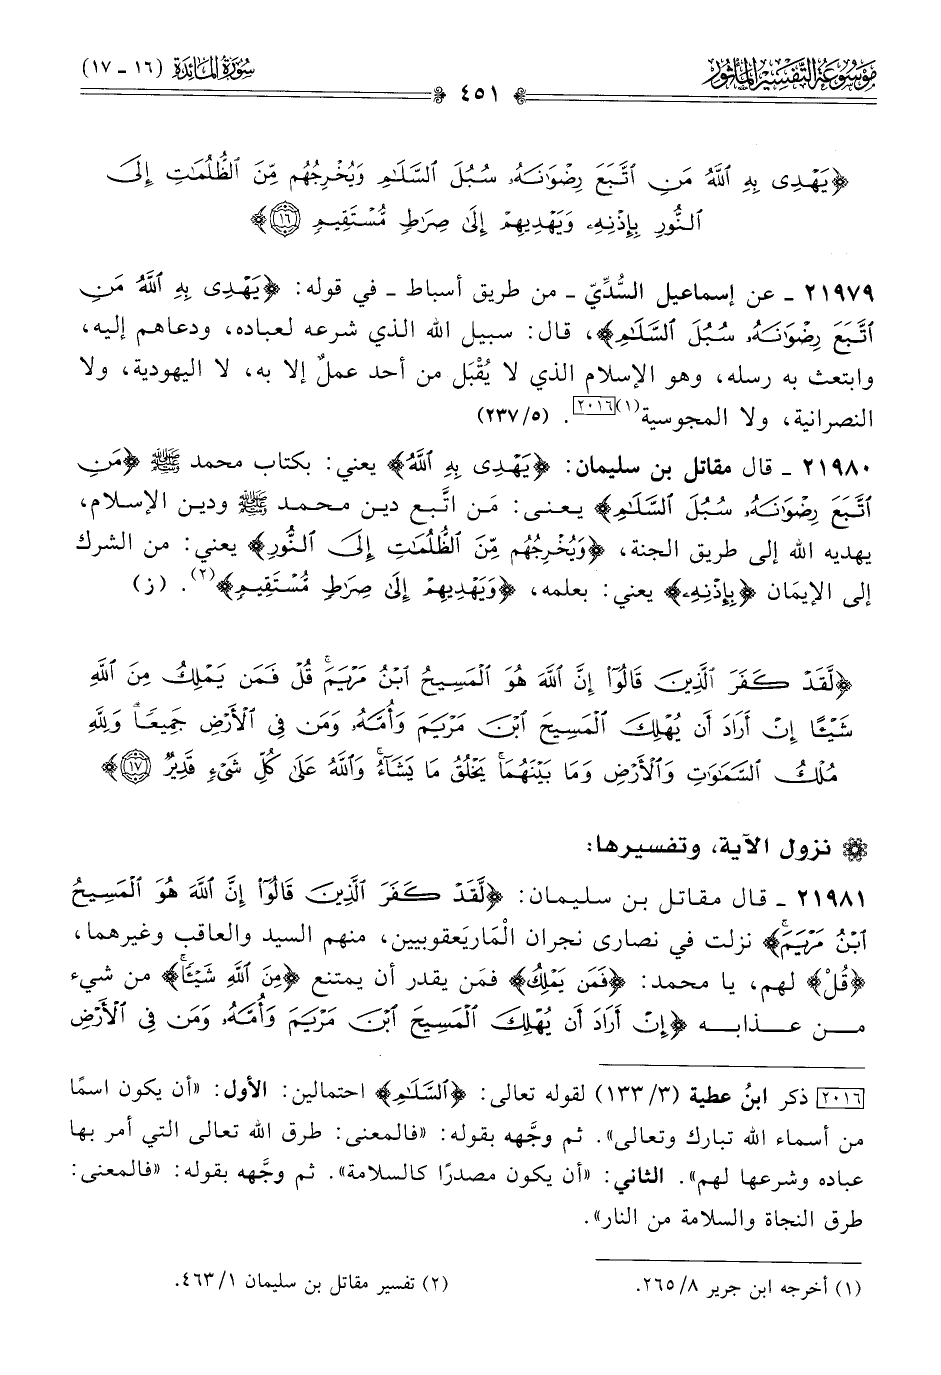 مَوْسُوعَةُ التَّفْسِيْرِ المَأْثُورِ
سُورَةُ المَائِدَةِ (١٦ - ١٧)
٤٥١
﴿يَهْدِى بِهِ ٱللَّهُ مَنِ ٱتَّبَعَ رِضْوَٰنَهُۥ سُبُلَ ٱلسَّلَٰمِ وَيُخْرِجُهُم مِّنَ ٱلظُّلُمَٰتِ إِلَى
ٱلنُّورِ بِإِذْنِهِۦ وَيَهْدِيهِمْ إِلَىٰ صِرَٰطٍ مُّسْتَقِيمٍ ١٦﴾
٢١٩٧٩ - عن إسماعيل السُّدِّيّ - من طريق أسباط - في قوله: ﴿يَهْدِى بِهِ ٱللَّهُ مَنِ
ٱتَّبَعَ رِضْوَٰنَهُۥ سُبُلَ ٱلسَّلَٰمِ﴾، قال: سبيل الله الذي شرعه لعباده، ودعاهم إليه،
وابتعث به رسله، وهو الإسلام الذي لا يُقْبَل من أحد عملٌ إلا به، لا اليهودية، ولا
النصرانية، ولا المجوسية(١)[٢٠١٦]. (٥/ ٢٣٧)
٢١٩٨٠ - قال مقاتل بن سليمان: ﴿يَهْدِى بِهِ ٱللَّهُ﴾ يعني: بكتاب محمد ﷺ ﴿مَنِ
ٱتَّبَعَ رِضْوَٰنَهُۥ سُبُلَ ٱلسَّلَٰمِ﴾ يعني: مَن اتَّبع دين محمد ﷺ ودين الإسلام،
يهديه الله إلى طريق الجنة، ﴿وَيُخْرِجُهُم مِّنَ ٱلظُّلُمَٰتِ إِلَى ٱلنُّورِ﴾ يعني: من الشرك
إلى الإيمَان ﴿بِإِذْنِهِۦ﴾ يعني: بعلمه، ﴿وَيَهْدِيهِمْ إِلَىٰ صِرَٰطٍ مُّسْتَقِيمٍ﴾(٢). (ز)
﴿لَّقَدْ كَفَرَ ٱلَّذِينَ قَالُوٓا۟ إِنَّ ٱللَّهَ هُوَ ٱلْمَسِيحُ ٱبْنُ مَرْيَمَ ۚ قُلْ فَمَن يَمْلِكُ مِنَ ٱللَّهِ
شَيْـًٔا إِنْ أَرَادَ أَن يُهْلِكَ ٱلْمَسِيحَ ٱبْنَ مَرْيَمَ وَأُمَّهُۥ وَمَن فِى ٱلْأَرْضِ جَمِيعًا ۗ وَلِلَّهِ
مُلْكُ ٱلسَّمَٰوَٰتِ وَٱلْأَرْضِ وَمَا بَيْنَهُمَا ۚ يَخْلُقُ مَا يَشَآءُ ۚ وَٱللَّهُ عَلَىٰ كُلِّ شَىْءٍ قَدِيرٌ ١٧﴾
نزول الآية، وتفسيرها:
٢١٩٨١ - قال مقاتل بن سليمان: ﴿لَّقَدْ كَفَرَ ٱلَّذِينَ قَالُوٓا۟ إِنَّ ٱللَّهَ هُوَ ٱلْمَسِيحُ
ٱبْنُ مَرْيَمَ ۚ﴾ نزلت في نصارى نجران الْمَاريَعقوبيين، منهم السيد والعاقب وغيرهما،
﴿قُلْ﴾ لهم، يا محمد: ﴿فَمَن يَمْلِكُ﴾ فمَن يقدر أن يمتنع ﴿مِنَ ٱللَّهِ شَيْـًٔا ۚ﴾ من شيء
من عذابه ﴿إِنْ أَرَادَ أَن يُهْلِكَ ٱلْمَسِيحَ ٱبْنَ مَرْيَمَ وَأُمَّهُۥ وَمَن فِى ٱلْأَرْضِ
[٢٠١٦] ذكر ابنُ عطية (٣/ ١٣٣) لقوله تعالى: ﴿ٱلسَّلَٰمِ﴾ احتمالين: الأول: «أن يكون اسمًا
من أسماء الله تبارك وتعالى». ثم وجَّهه بقوله: «فالمعنى: طرق الله تعالى التي أمر بها
عباده وشرعها لهم». الثاني: «أن يكون مصدرًا كالسلامة». ثم وجَّهه بقوله: «فالمعنى:
طرق النجاة والسلامة من النار».
(١) أخرجه ابن جرير ٨/ ٢٦٥.
(٢) تفسير مقاتل بن سليمان ١/ ٤٦٣.